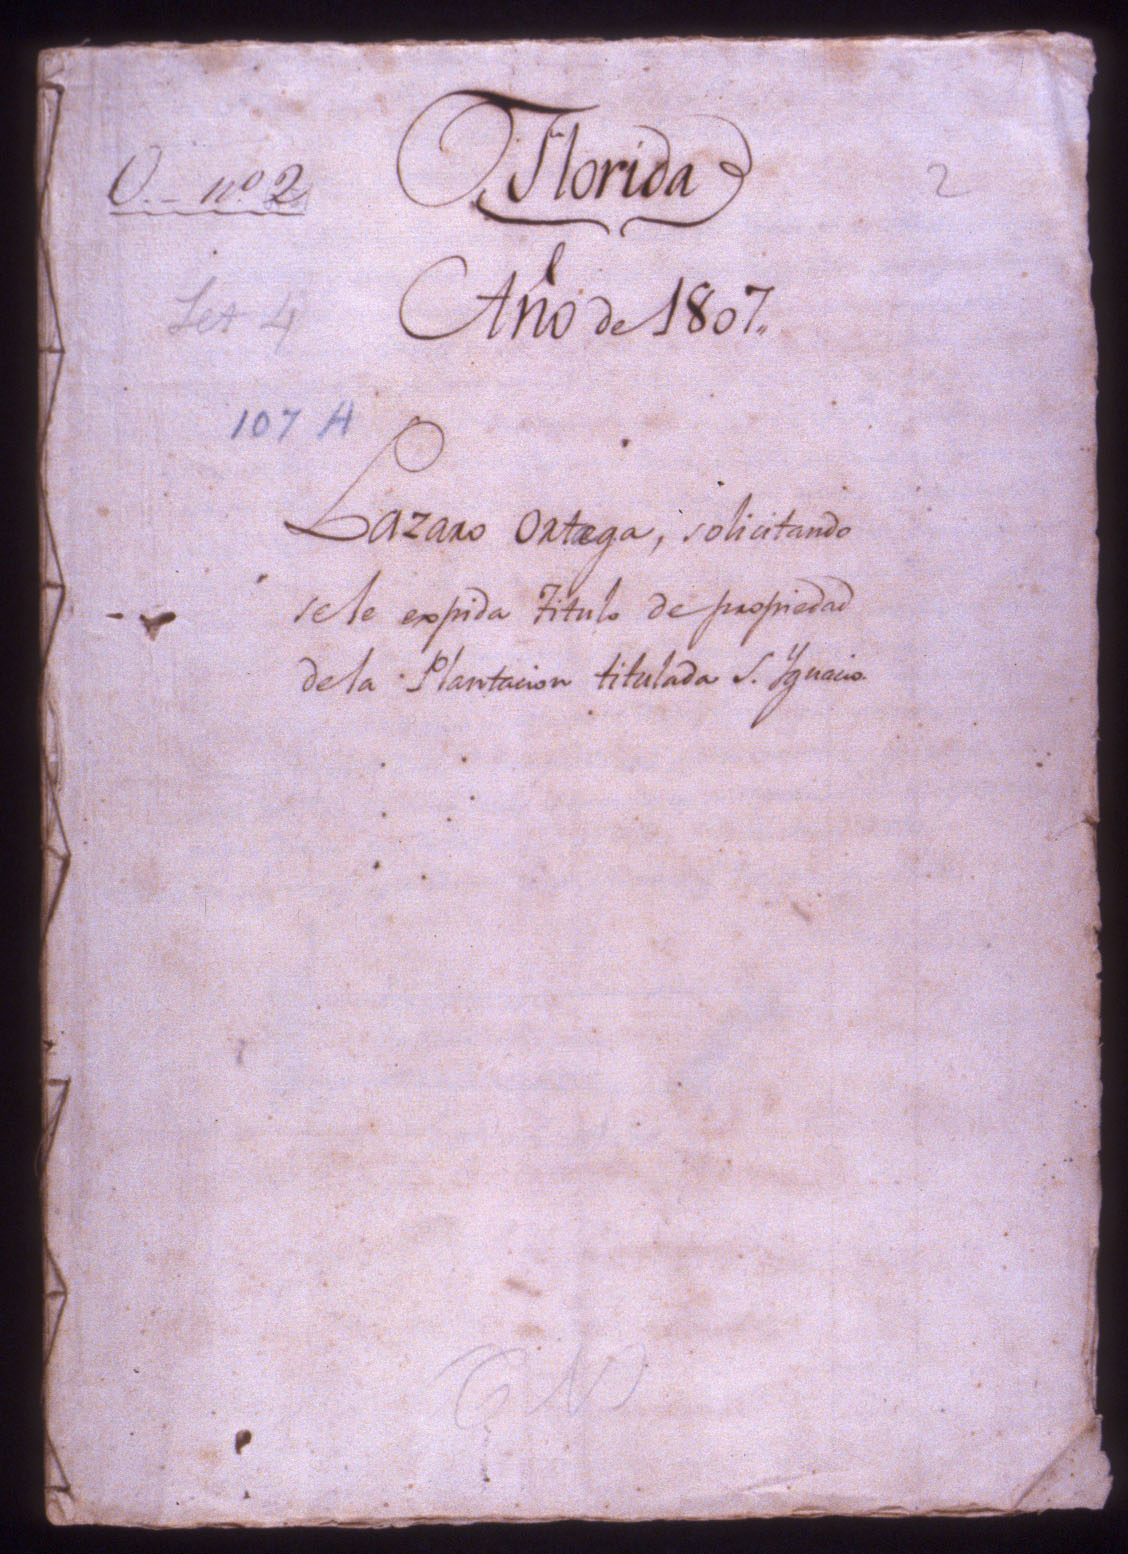 Florida
O. - nº 2
2
Año de 1807.,
Let 4
107 A
Lazaro Ortega, solicitando
se le expida Titulo de propiedad
de la Plantacion titulada S. Ygnacio.